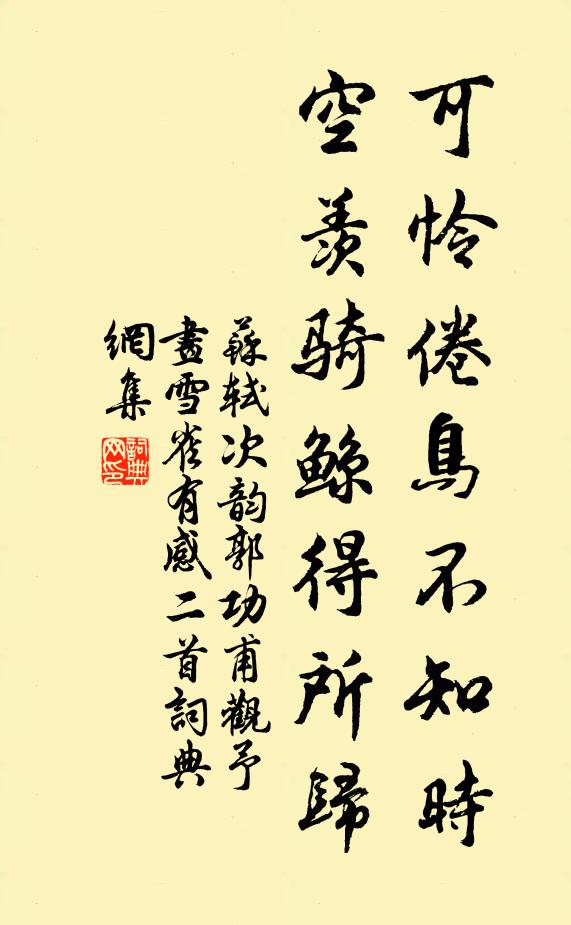 可怜倦鳥不知時
空羨骑鲸得所歸
蘇軾次韵郭功甫觀予
畫雪雀有感二首詞典
網集
詞典
网印